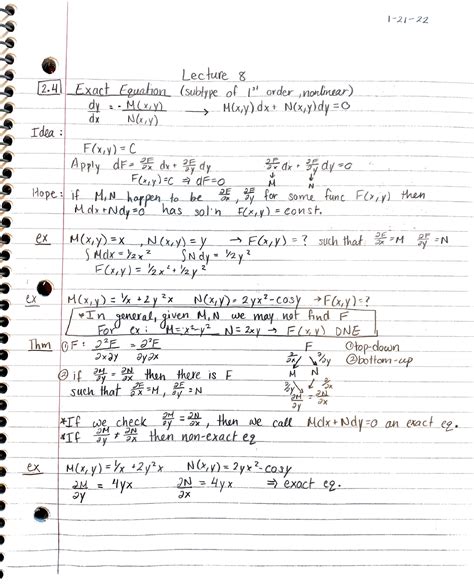 1-21-22
Lecture 8
2.4 Exact Equation (subtype of 1st order, nonlinear)
dy/dx = - M(x,y)/N(x,y) → M(x,y)dx + N(x,y)dy = 0
Idea:
F(x,y) = C
Apply dF = ∂F/∂x dx + ∂F/∂y dy    ∂F/∂x dx + ∂F/∂y dy = 0
F(x,y) = C ⇒ dF = 0    ↓ M    ↓ N
Hope: if M,N happen to be ∂F/∂x, ∂F/∂y for some func F(x,y) then
Mdx + Ndy = 0 has sol'n F(x,y) = const.
ex M(x,y) = x, N(x,y) = y → F(x,y) = ? such that ∂F/∂x = M ∂F/∂y = N
∫Mdx = 1/2x² ∫Ndy = 1/2y²
F(x,y) = 1/2x² + 1/2y²
ex M(x,y) = 1/x + 2y²x N(x,y) = 2yx² - cosy → F(x,y) = ?
*In general, given M,N we may not find F
For ex: M = x²-y² N = 2xy → F(x,y) DNE
Thm ① F: ∂²F/∂x∂y = ∂²F/∂y∂x    F    ① top-down
∂/∂x ∂/∂y    ② bottom-up
② if ∂M/∂y = ∂N/∂x then there is F    M N
such that ∂F/∂x = M, ∂F/∂y = N    ∂/∂y ∂/∂x
∂M/∂y = ∂N/∂x
*If we check ∂M/∂y = ∂N/∂x, then we call Mdx + Ndy = 0 an exact eq.
*If ∂M/∂y ≠ ∂N/∂x then non-exact eq
ex M(x,y) = 1/x + 2y²x N(x,y) = 2yx² - cosy
∂M/∂y = 4yx ∂N/∂x = 4yx ⇒ exact eq.